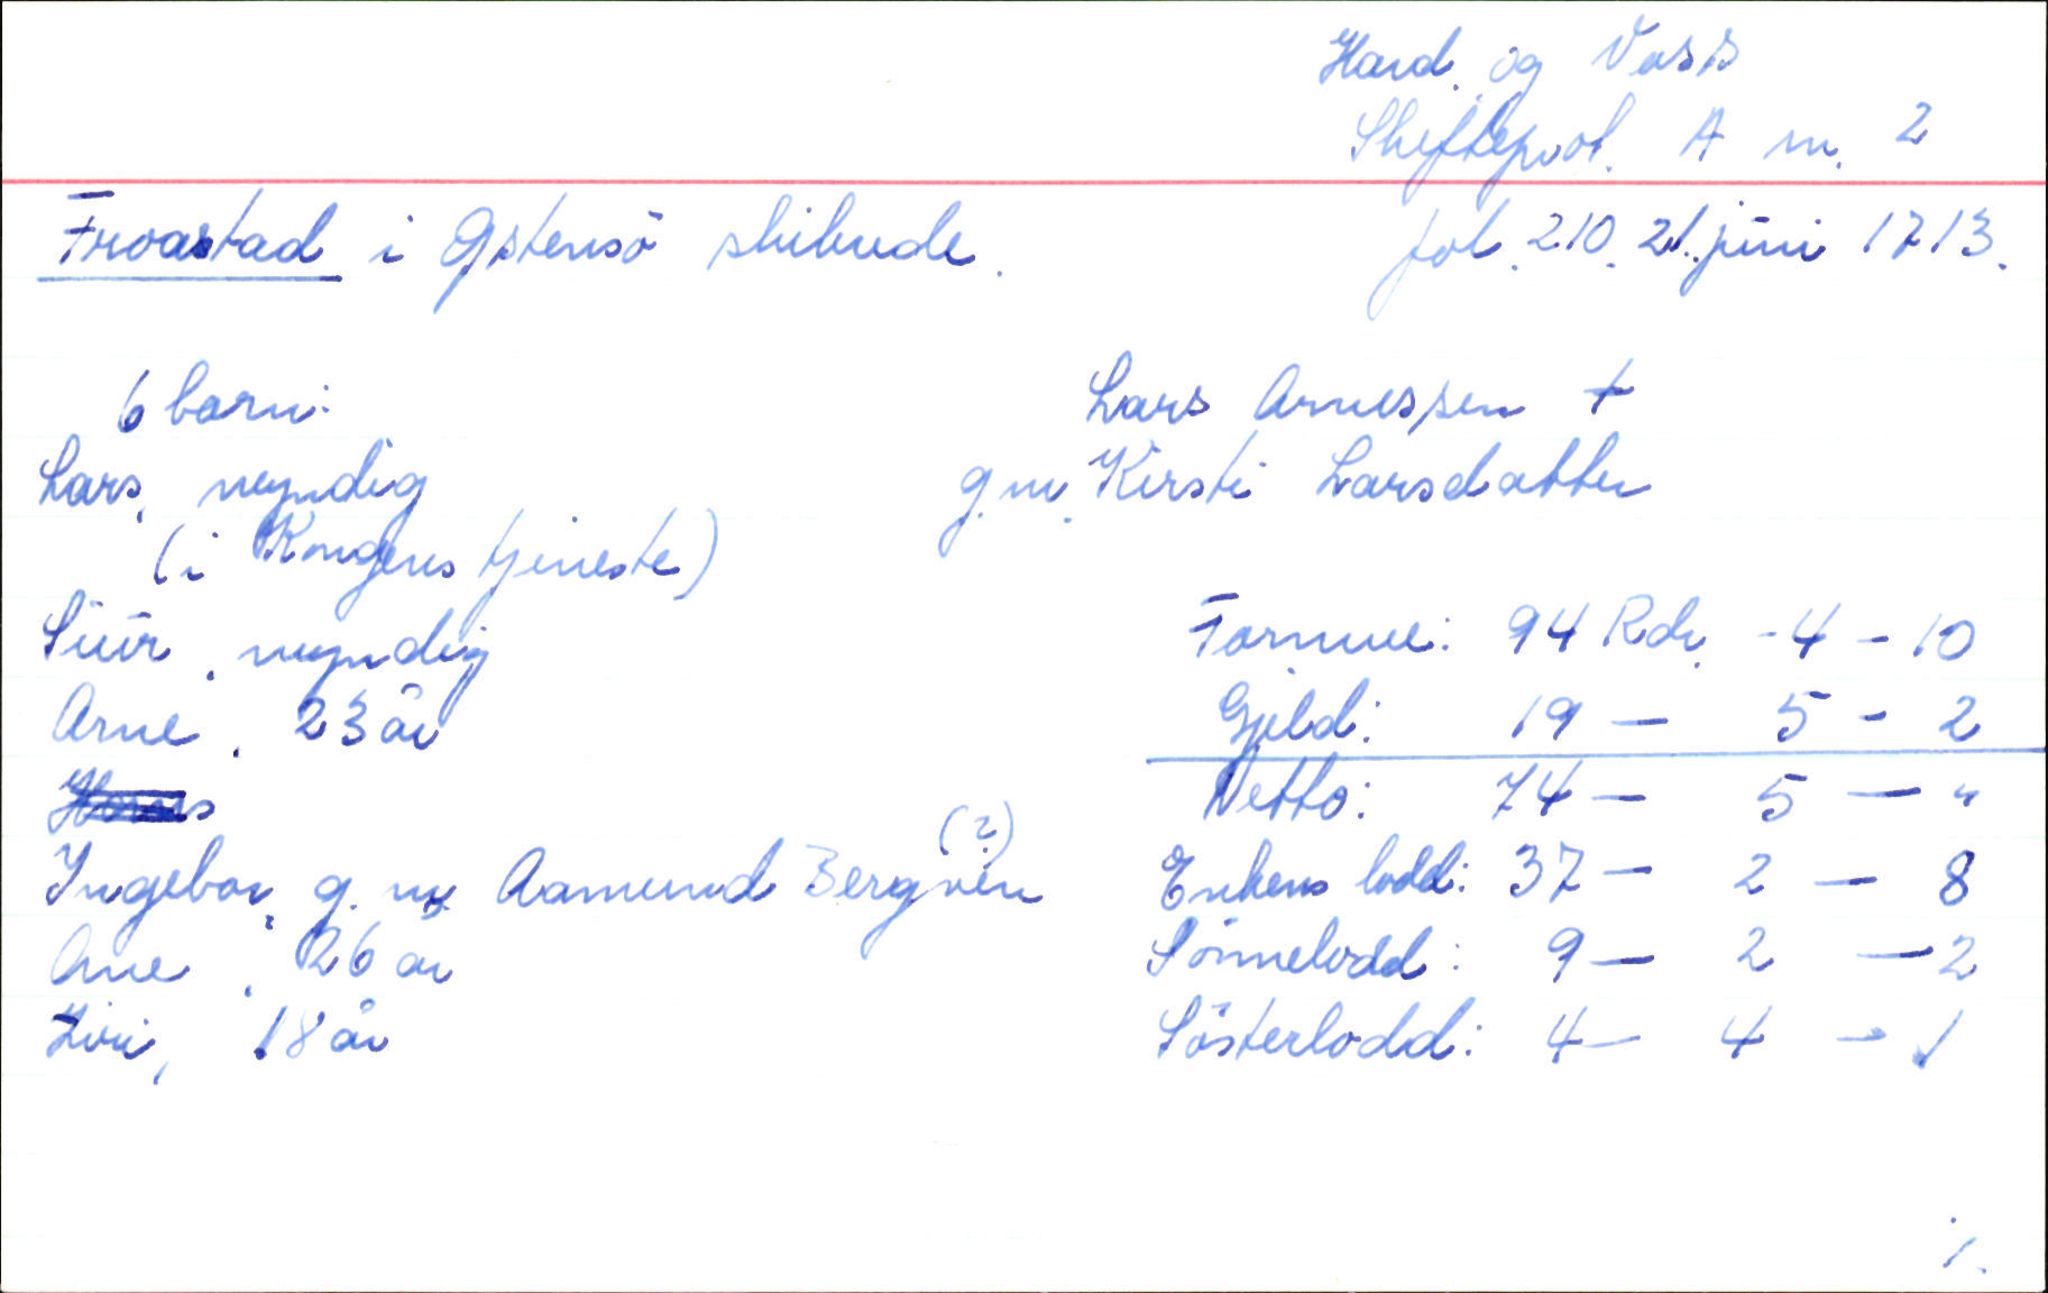 Hard. og Voss
Skifteprot. A nr. 2
Froastad i Østensö skibrede.
fol. 210. 21. juni 1713.
6 barn:
Lars, myndig
(i Kongens tjeneste)
Siur, myndig
Arne, 23 år
Ingebor, g. m. Aamund Bergven (?)
Ane, 26 år
Ziri, 18 år
Lars Arnessen †
g. m. Kirsti Larsdatter
Formue: 94 Rdr. - 4 - 10
Gjeld: 19 — 5 - 2
Netto: 74 — 5 — "
Enkens lodd: 37 — 2 — 8
Sönnelodd: 9 — 2 — 2
Sösterlodd: 4 — 4 — 1
./.